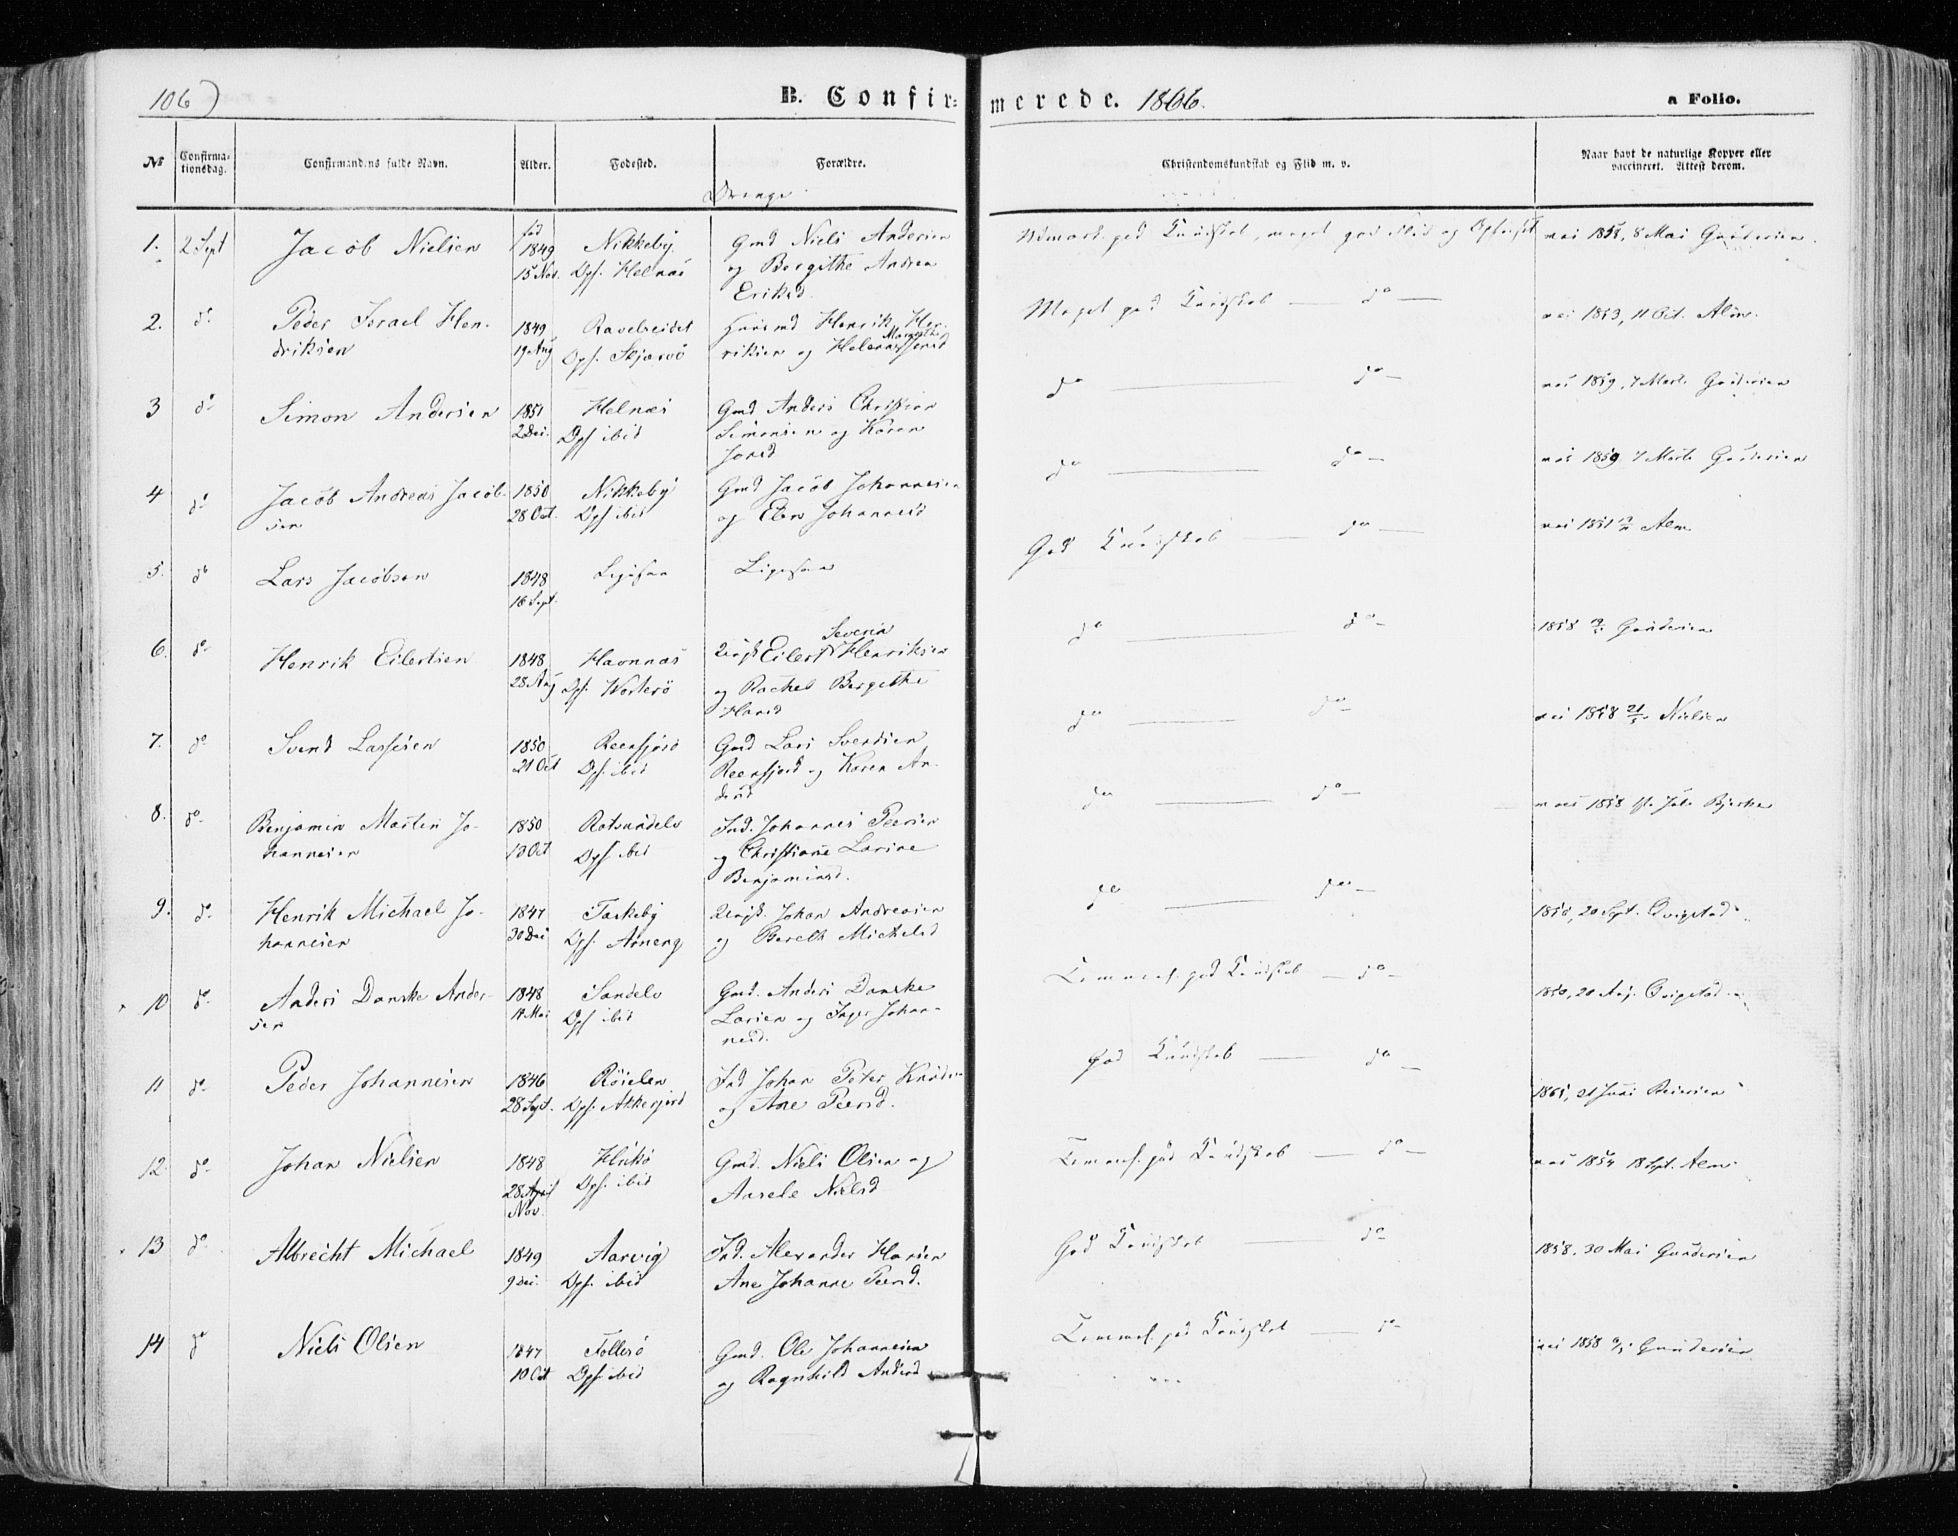 106)
B. Confir=
merede. 1866.
a Folio.
No
Confirma-
tionsdag.
Confirmandens fulde Navn.
Alder.
Fødested.
Forældre.
Christendomskundskab og Flid m. v.
Naar havt de naturlige Kopper eller
vaccineret. Attest derom.
Drenge
1. 2 Sept Jacob Nielsen
fød
1849
15 Nov.
Nikkeby
Dpf. Helnæs
Gmd Niels Andersen
og Bergithe Andrea
Eriksd.
Udmærk. god Kundskab, meget god Flid og Opførsel
vac 1858, 8 Mai Gundersen.
2. do Peder Israel Hen-
driksen
1849
19 Aug
Ravelseidet
Dpf. Skjærvø
Huusmd Henrik Hen-
riksen og Helene Margrethe
Meget god Kundskab — do —
vac 1853, 11 Oct. Alm.
3 do Simon Andersen
1851
2 Dec.
Helnæs
Dpf ibid
Gmd Anders Christian
Simonsen og Karen
Jonsd
do — do —
vac 1859, 7 Marts Gundersen
4 do Jacob Andreas Jacob-
sen
1850
28 Oct.
Nikkeby
Dpf ibid
Gmd Jacob Johannesen
og Elen Johannesd
do — do —
vac 1859 7 Marts Gundersen
5. do Lars Jacobsen
1848
16 Sept.
Ligesaa
Ligesaa
God Kundskab — do —
vac 1851 Alm
6. do Henrik Eilertsen
1848
28 Aug
Havnnæs
Dpf. Worterø
Eilert Severin Henriksen
og Rachel Bergithe
Hansd
do — do —
1858 Gundersen
7. do Svend Larsen
1850
21 Oct
Reenfjord
Dpf. ibid
Gmd Lars Svendsen
Reenfjord og Karen An-
dersd
do — do —
vac 1858 21/5 Nielsen
8. do Benjamin Martin Jo-
hannesen
1850
13 Oct
Rotsundelv
Dpf ibid
Ind. Johannes Peersen
og Christiane Larine
Benjaminsd.
do — do —
1858 Juli Bjerke
9. do Henrik Michael Jo-
hannesen
1847
30 Dec
Taskeby
Dpf. Arneng
Johan Andreasen
og Bereth Michelsd
do — do —
1850, 20 Sept. Qvigstad
10 do Anders Danske Ander-
sen
1848
14 Mai
Sandelv
Dpf ibid
Gmd. Anders Danske
Larsen og Inger Johan-
nesd.
Temmel. god Kundskab — do —
1850, 20 Aug. Qvigstad
11 do Peder Johannesen
1846
28 Sept.
Røielen
Dpf. Akkerfjord
Ind Johan Peter Knudsen
og Ane Peersd.
God Kundskab — do —
1861, 21 Juni
12. do Johan Nielsen
1848
28 April
Nov.
Hukø
Dpf. ibid
Gmd. Niels Olsen og
Aarele Nielsd
Temmel. god Kundskab — do —
vac 1854 18 Spt. Alm.
13 do Albrecht Michael
1849
9 Dec.
Aarvig
Dpf. ibid
Ind. Alexander Hansen
Ane Johanne Peersd.
God Kundskab — do
1858. 30 Mai Gundersen
14 do Niels Olsen
1847
10 Oct
Follesø
Dpf. ibid
Gmd. Ole Johannesen
og Ragnhild Andersd
Temmel. god Kundskab — do
vac 1858 Gundersen